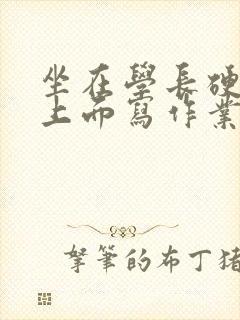 坐在學長硬
上面寫作業
拏筆的布丁豬